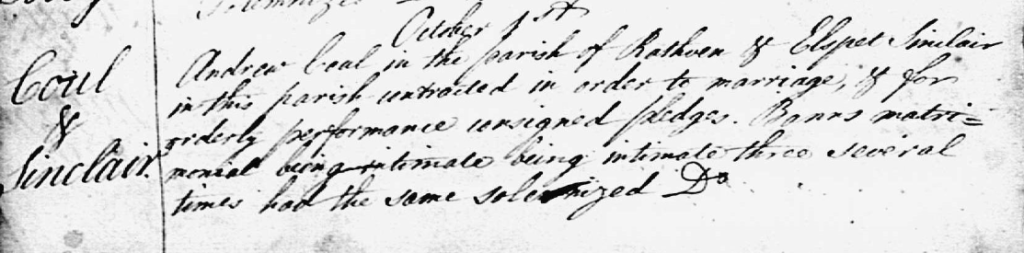 Solemnized
October 1st
Coul
&
Sinclair
Andrew Coul in the parish of Rathven & Elspet Sinclair
in this parish contracted in order to marriage, & for
orderly performance consigned pledges. Banns matri=
monial being intimate being intimate three several
times had the same solemnized Do